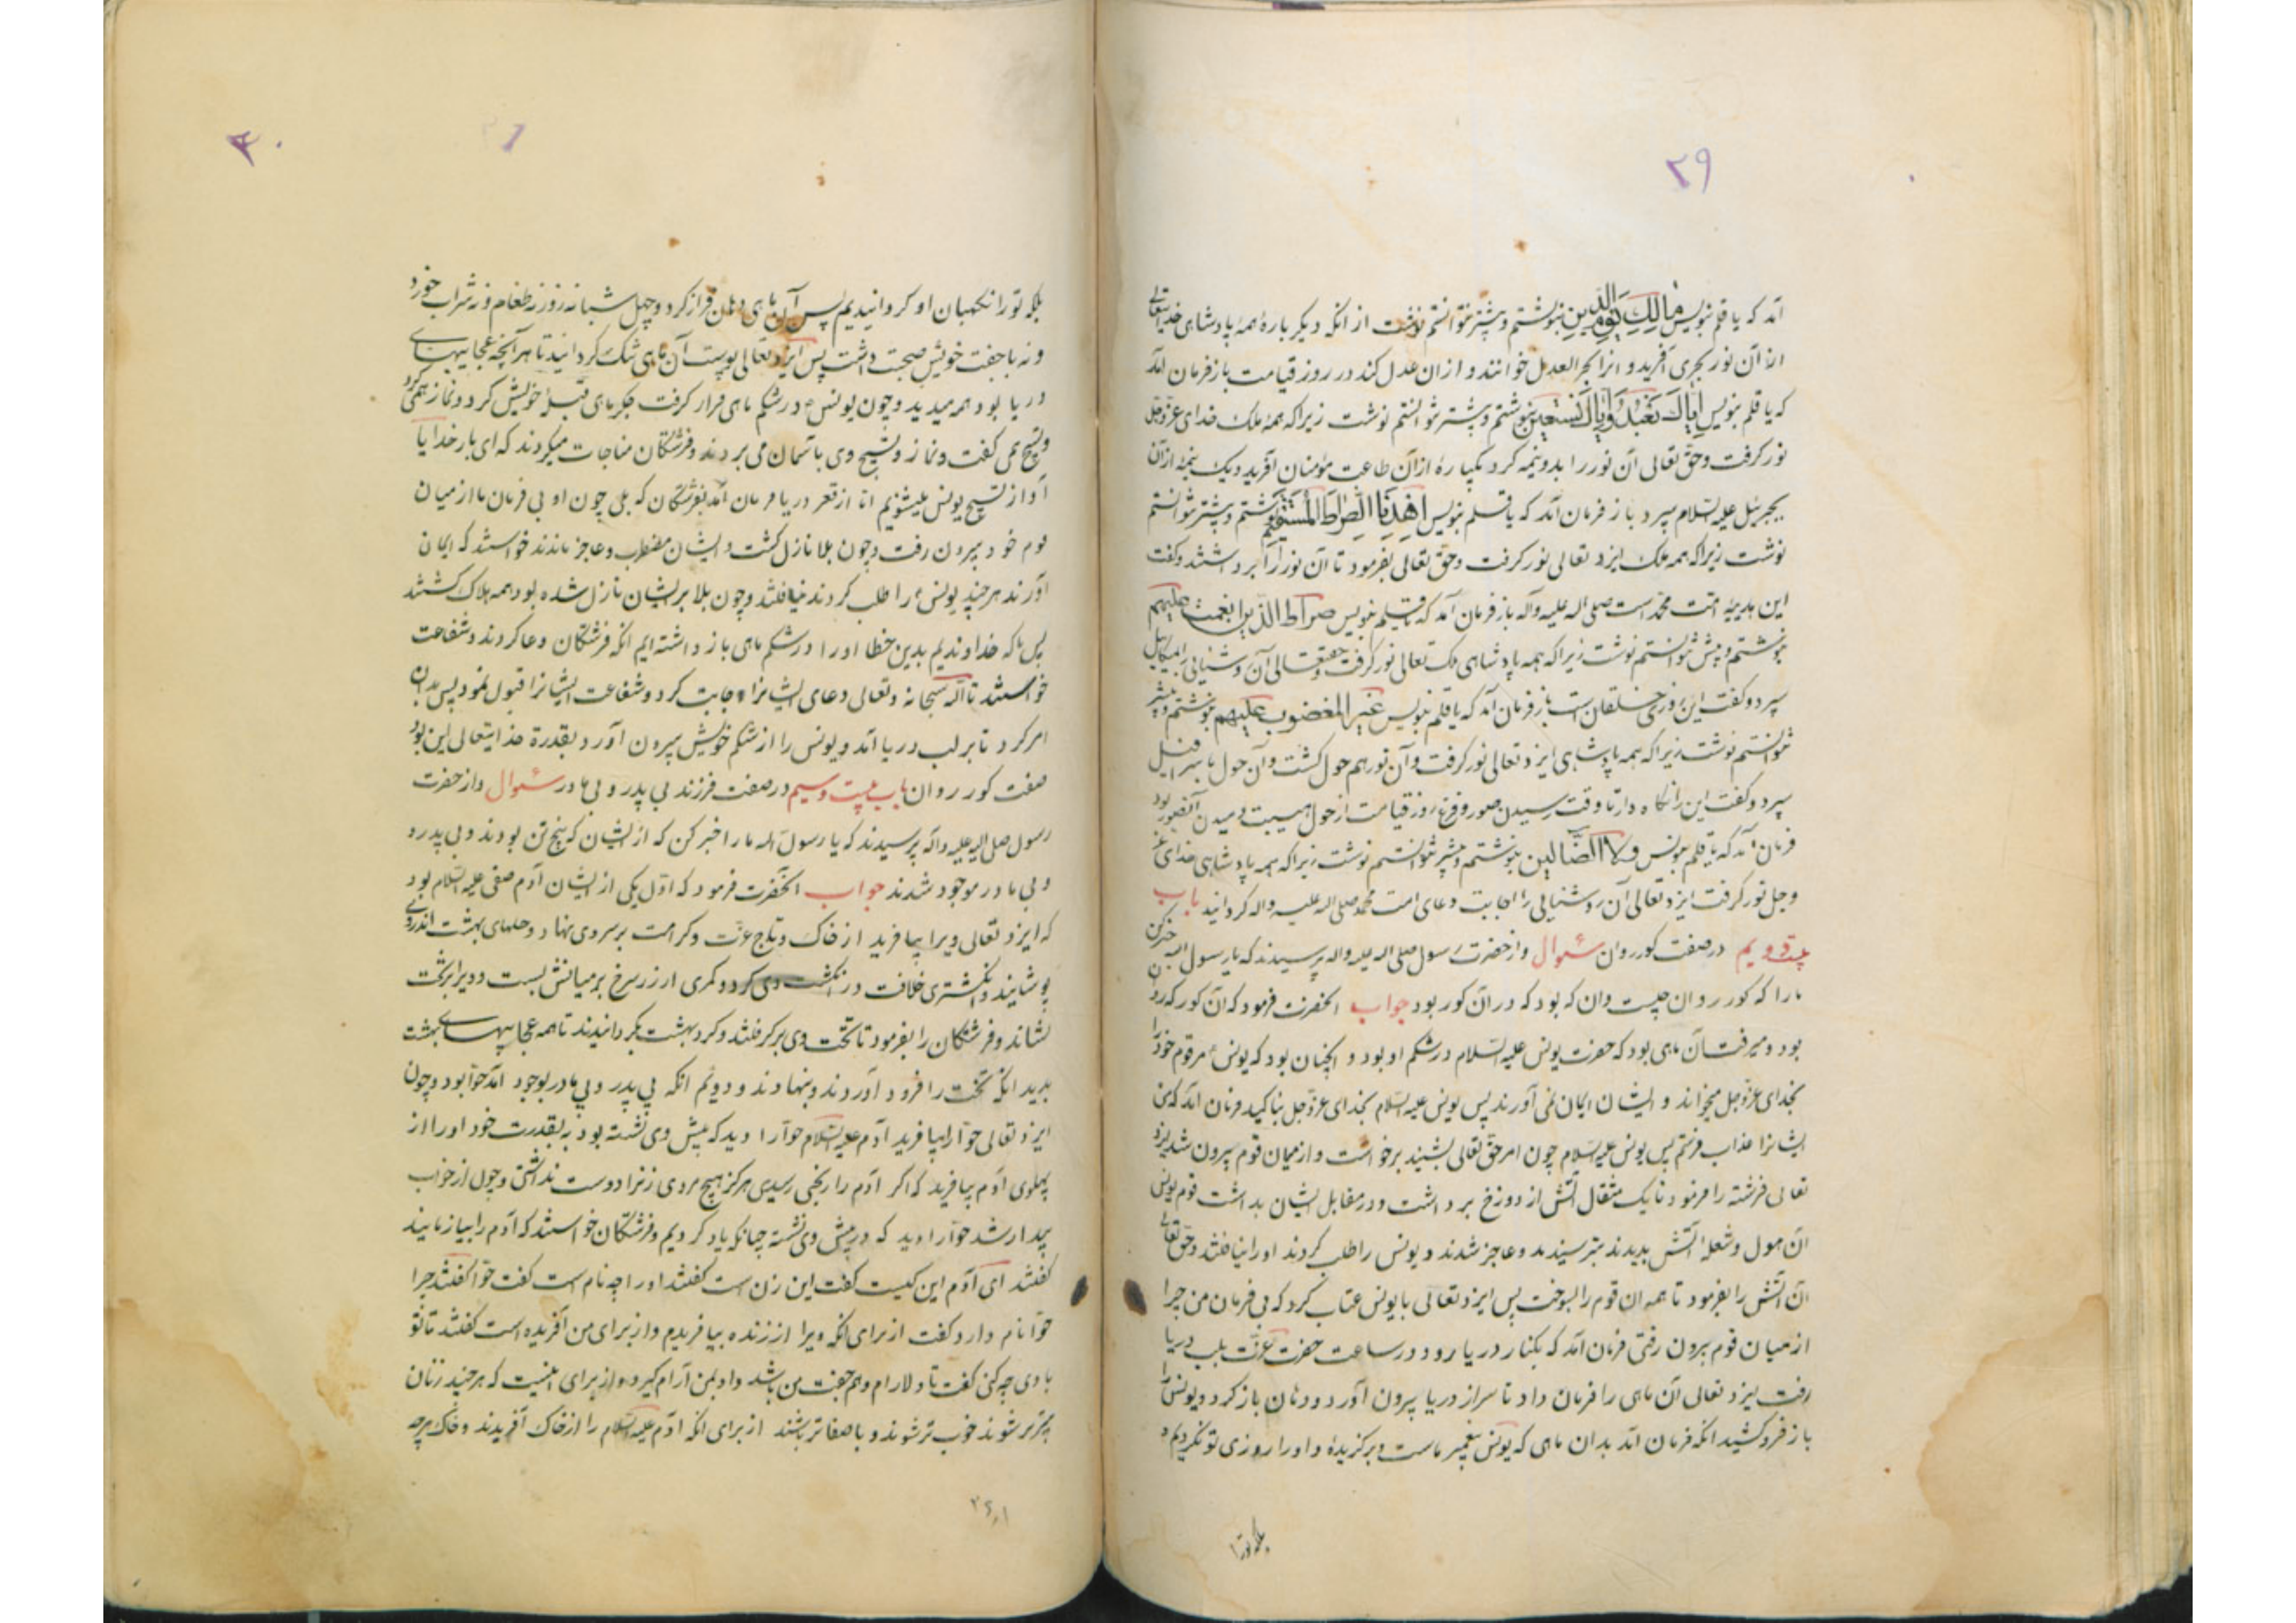 ۲۹
آمد که یا قلم بنویس مالک یوم الدین بنوشتم و پیشتر نتوانستم نوشت از انکه دیکر باره همهٔ پادشاهی خدایتعالی
از آن نور بحری آفرید و انرا بحر العدل خوانند و از ان عدل کند در روز قیامت باز فرمان آمد
که یا قلم بنویس ایاک نعبد وایاک نستعین بنوشتم و پیشتر نتوانستم نوشت زیرا که همهٔ ملک خدای عز وجل
نور کرفت و حق تعالی آن نور را بدو نیمه کرد یکپاره از آن طاعت مؤمنان آفرید و یک نیمهٔ از آن
بجبرئیل علیه السلام سپرد باز فرمان آمد که یا قلم بنویس اهدنا الصراط المستقیم بنوشتم و پیشتر نتوانستم
نوشت زیرا که همه ملک ایزد تعالی نور کرفت و حق تعالی بفرمود تا آن نور را برداشتند و کفت
این هدیهٔ امت محمد است صلی اله علیه وآله باز فرمان آمد که یا قلم بنویس صراط الذین انعمت علیهم
بنوشتم و پیش نتوانستم نوشت زیرا که همه پادشاهی ملک تعالی نور کرفت و حقتعالی آن روشنایی را بمیکائیل
سپرد و کفت این روزی خلقان است باز فرمان آمد که یا قلم بنویس غیر المغضوب علیهم بنوشتم و پیشتر
نتوانستم نوشت زیرا که همه پادشاهی ایزد تعالی نور کرفت و آن نور هم حول کشت و آن حول باسرافیل
سپرد و کفت این را نکاه دار تا وقت رسیدن صور و فزع روز قیامت از حول هیبت دمیدن آنصور بود
فرمان آمد که یا قلم بنویس ولا الضالین بنوشتم و پیشتر نتوانستم نوشت زیرا که همه پادشاهی خدای عز
وجل نور کرفت ایزد تعالی آن روشنایی را اجابت دعای امت محمد صلی اله علیه واله کردانید باب
بیست و دویم در صفت کور روان سئوال و از حضرت رسول صلی اله علیه واله پرسیدند که یا رسول اله خبر کن
ما را که کور روان چیست و ان که بود که در آن کور بود جواب انحضرت فرمود که آن کور که زنده
بود و میرفت آن ماهی بود که حضرت یونس علیه السلام در شکم او بود و انچنان بود که یونس مر قوم خود را
بخدای عز وجل میخواند و ایشان ایمان نمی آورند پس یونس علیه السلام بخدای عز وجل بنالید فرمان آمد که من
ایشانرا عذاب فرستم پس یونس علیه السلام چون امر حق تعالی بشنید برخواست و از میان قوم بیرون شد ایزد
تعالی فرشته را فرمود تا یک مثقال آتش از دوزخ برداشت و در مقابل ایشان بداشت قوم یونس
ان هول و شعلهٔ آتش بدیدند بترسیدند و عاجز شدند و یونس را طلب کردند او را نیافتند و حق تعالی
آن آتش را بفرمود تا همه ان قوم را بسوخت پس ایزد تعالی با یونس عتاب کرد که بی فرمان من چرا
از میان قوم برون رفتی فرمان آمد که بکنار دریا رود در ساعت حضرت عزت بلب دریا
رفت ایزد تعالی آن ماهی را فرمان داد تا سر از دریا بیرون آورد و دهان باز کرد و یونس را
باز فرو کشید انکه فرمان آمد بدان ماهی که یونس پیغمبر ماست و برکزیدهٔ و او را روزی تو نکردیم
بلکه تو را
۳۰
بلکه تو را نکهبان او کردانیدیم پس آن ماهی دهان فراز کرد و چهل شبانه روز نه طعام و نه شراب خورد
و نه با جفت خویش صحبت داشت پس ایزد تعالی پوست آن ماهی تنک کردانید تا هر آنچه عجایبهای
دریا بود همه میدید و چون یونس در شکم ماهی قرار کرفت جکر ماهی قبلهٔ خویش کرد و نماز همی کرد
و تسبیح همی کفت و نماز و تسبیح وی باسمان می بردند و فرشتکان مناجات میکردند که ای بار خدایا
آواز تسبیح یونس میشنویم اما از قعر دریا فرمان آمد بفرشتکان که بلی چون او بی فرمان ما از میان
قوم خود بیرون رفت و چون بلا نازل کشت و ایشان مضطرب و عاجز ماندند خواستند که ایمان
آورند هر چند یونس را طلب کردند نیافتند و چون بلا بر ایشان نازل شده بود همه هلاک کشتند
پس ما که خداوندیم بدین خطا او را در شکم ماهی باز داشته ایم انکه فرشتکان دعا کردند و شفاعت
خواستند تا اله سبحانه وتعالی دعای ایشانرا اجابت کرد و شفاعت ایشانرا قبول نمود پس بدان
امر کرد تا بر لب دریا آمد و یونس را از شکم خویش بیرون آورد بقدرة خدایتعالی این بود
صفت کور روان باب بیست و سیم در صفت فرزند بی پدر و بی مادر سئوال و از حضرت
رسول صلی اله علیه واله پرسیدند که یا رسول اله ما را خبر کن که از ایشان که پنج تن بودند و بی پدر
و بی مادر موجود شدند جواب انحضرت فرمود که اول یکی از ایشان آدم صفی علیه السلام بود
که ایزد تعالی ویرا بیافرید از خاک و تاج عزت و کرامت بر سر وی نهاد و حلهای بهشت اندر وی
پوشانید و انکشتری خلافت در انکشت وی کرد و کمری از زر سرخ بر میانش بست و ویرا بر تخت
نشاند و فرشتکان را بفرمود تا تخت وی بر کرفتند و کرد بهشت بکردانیدند تا همه عجایبهای بهشت
بدید انکه تخت را فرود آوردند و بنهادند و دویم انکه بی پدر و بی مادر بوجود آمد حوا بود و چون
ایزد تعالی حوا را بیافرید آدم علیه السلام حوا را دید که پیش وی نشسته بود به بقدرت خود او را از
پهلوی آدم بیافرید که اکر آدم را رنجی رسیدی هرکز هیچ مردی زنرا دوست نداشتی و چون از خواب
بیدار شد حوا را دید که در پیش وی نشسته چنانکه یاد کردیم و فرشتکان خواستند که آدم را بیازمایند
کفتند ای آدم این کیست کفت این زن است کفتند او را چه نام است کفت حوا کفتند چرا
حوا نام دارد کفت از برای انکه ویرا از زنده بیافریدم و از برای من آفریده است کفتند تا تو
با وی چه کنی کفت تا دلارام و هم جفت من باشد و او بمن آرام کیرد و از برای اینست که هر چند زنان
مهتر شوند خوب تر شوند و با صفا تر باشند از برای انکه آدم علیه السلام را از خاک آفریدند و خاک هر چه